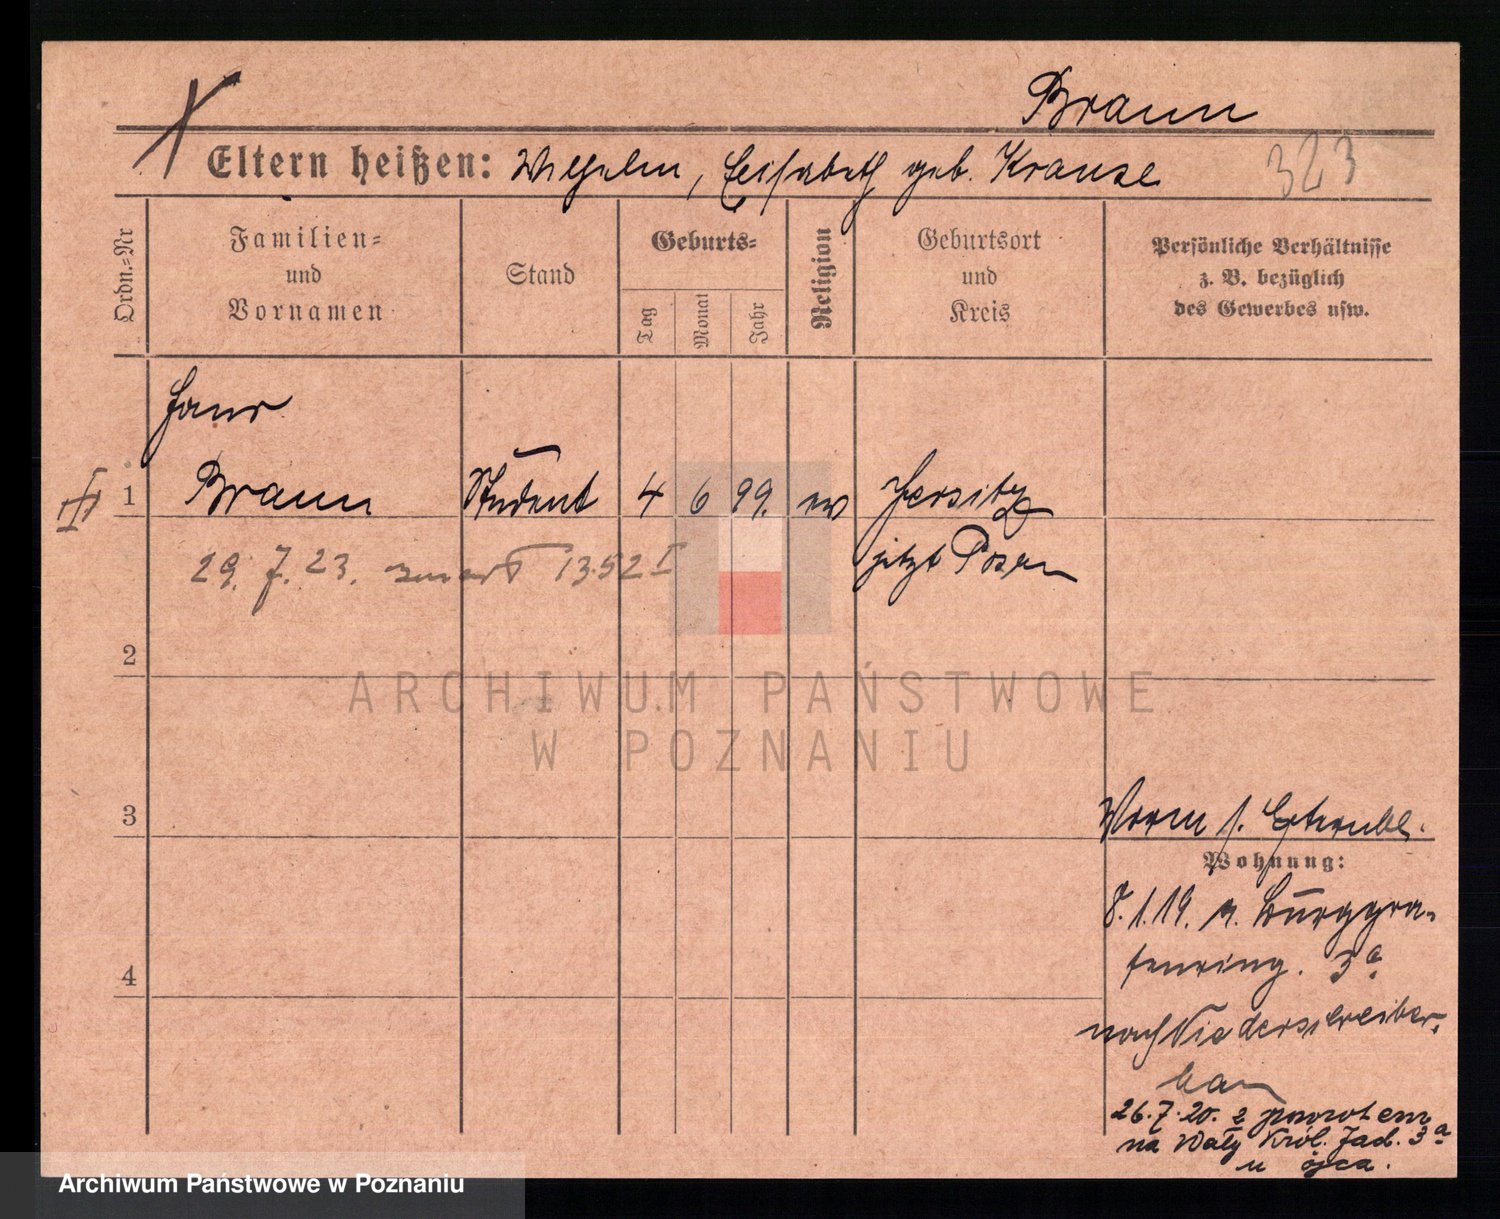 Braun
Eltern heißen: Wilhelm, Elisabeth geb. Krause
323
Ordn.=Nr
Familien=
und
Vornamen
Stand
Geburts=
Tag
Monat
Jahr
Religion
Geburtsort
und
Kreis
Persönliche Verhältnisse
z. B. bezüglich
des Gewerbes usw.
Hans
1 Braun Student 4 6 99. ev Jersitz
jetzt Posen
29. 7. 23. 1352 I
2
3
Vorm s.
Wohnung:
8.1.19. n. Burggra-
fenring. 3a
4
nach Niederschreiber-
26.7.20. z powrotem
na Wały Król. Jad. 3a
u ojca.
ARCHIWUM PAŃSTWOWE
W POZNANIU
Archiwum Państwowe w Poznaniu